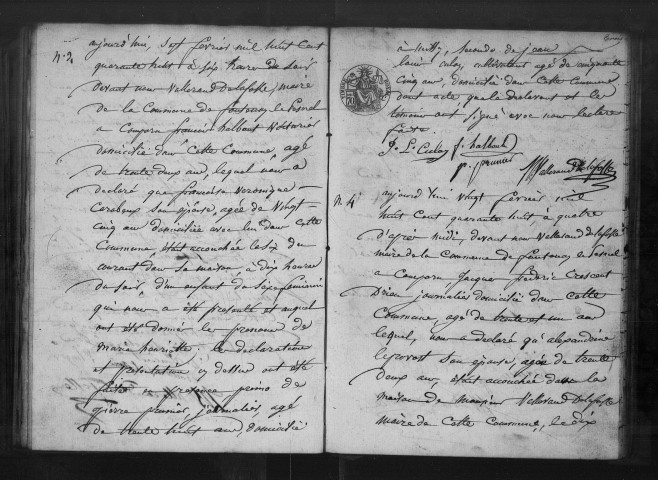 N. 2
aujourd'hui, sept février mil huit cent
quarante huit à six heures du soir
devant nous Vallerand Delafosse, maire
de la Commune de fontenay le Pesnel
a comparu françois halbout
domicilié dans cette Commune, agé
de trente deux ans, lequel nous a
déclaré que françoise Veronique
son épouse, agée de vingt
cinq ans domiciliée avec lui dans cette
Commune était accouchée le six du
courant dans sa maison, a dix heures
du soir d'un enfant du sexe feminin
qui nous a été présenté et auquel
ont été donné les prenoms de
marie henriette. les déclaration
et présentation cy dessus ont été
faites en presence primo de
pierre prunier, journalier, agé
de trente huit ans, domicilié
secundo de jean
louis culay, cultivateur agé de cinquante
cinq ans, domicilié dans cette Commune
dont acte que le déclarant et les
temoins ont signé avec nous lecture
faite.
J. L. Culay f. halbout
p. prunier Vallerand Delafosse
N. 4
aujourd'hui vingt février mil
huit cent quarante huit, à quatre
d'après midi, devant nous Vallerand Delafosse
maire de la Commune de fontenay le Pesnel
a comparu, jacques frédéric Crescent
journalier domicilié dans cette
Commune, agé de trente et un ans
lequel, nous a déclaré qu'alexandrine
son épouse, agée de trente
deux ans, était accouchée dans la
maison de monsieur Vallerand Delafosse
maire de cette Commune, le dix